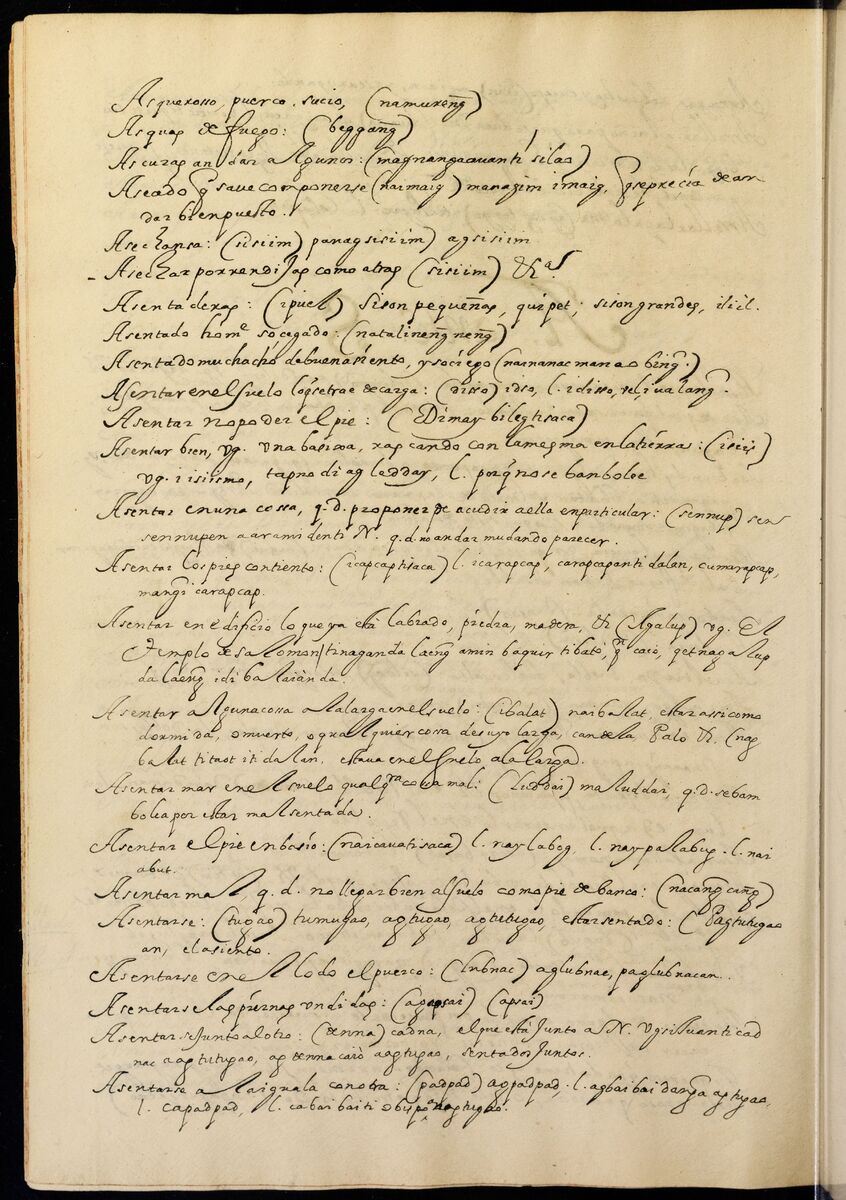 Asquerosso, puerco, sucio, (namureng̃)
Asquas de fuego: (beggang̃)
Ascuras andar algunos: (magnangaavanti silao)
Aseado q̃ save componerse (naimaig) managim imaig, q̃ se preçía de an-
dar bien puesto.
Asechansa: (sisiim) panagsisiim) agsisiim
Asechar por rendijas como atras (sisiim) &ª
Asentaderas: (ipuel) si son pequeñas, quipet; si son grandes, ilil.
Asentado homᵉ socegado: (natalineng̃neng̃)
Asentado muchacho de buen asiento, y sociego (nainanacman ao bing̃.)
Asentar en el suelo lo q̃ se trae de carga: (disso) idso, l. idisso,
Asentar no poder el pie: (Dimaybilegtisaca)
Asentar bien, vg. vna basiwa, rascando con la mesma en la tierra: (isiis)
vg. iisiismo, tapno di agledday, l. porq̃ no se bambolee
Asentar en una cossa, q.d. proponer de acudir a ella en particular: (sennup) sen
sennupen a aramidenti N. q.d. no andar mudando parecer.
Asentar los pies con tiento: (icapcaptisaca) l. icarapcap, carapcapanti dalan, cumarapcap,
mang̃icarapcap.
Asentar en edificio lo que ya està labrado, piedra, madera, & (Agalup) vg. El
Templo de Salomon, tinagandalaeng̃ amin baquir tibato, qⁿ caio, qet nagalup
dalaeng̃ idi balaiànda.
Asentar alguna cossa a la larga en el suelo: (ibalat) naibalat, estar assi como
dormida, o muerto, o qualquier cossa de suyo larga, candela Palo &. (nag
balat titaot iti dalan, estava en el suelo a la larga).
Asentar mar en el suelo qualqʳᵃ cossa mal: (liddai) maluddai, q.d. se bam
bolea por estar mal sentada.
Asentar el pie en basío: (naicavatisaca) l. naylabog, l. naypalabug. l. nai
abut.
Asentar mal, q.d. no llegar bien al suelo como pie de banco: (nacang̃cang̃)
Asentarse: (tugao) tumugao, agtugao, agtutugao, estar sentado: (Pagtutugao
an, el asiento.
Asentarse en el lodo el puerco: (lubnac) aglubnac, paglubnacan.
Asentarse las piernas vndidas: (agapsai) (apsai)
Asentarse junto al otro: (denna) cadna, el que està junto a N. vg si Juanti cad
nac a agtutugao, ag denna caiò a agtugao, sentados juntos.
Asentarse a la iguala con otra: (padpad) agpadpad, l. agbaibaidang̃a agtugao,
l. capadpad, l. cabaibaiti